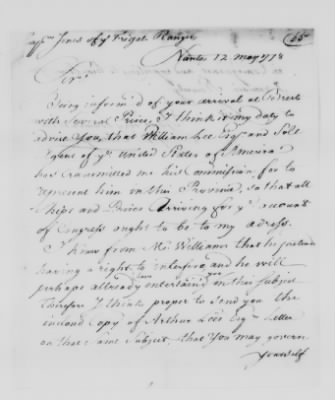 Capn Jones of ye Frigat Ranger 65
Nantes 12 May 1778
Sir,
Being inform'd of your arrival at Brest
with Several Prises, I think it my duty to
advise You, that William Lee Esqr and Sole
Agent of ye United States of America
has transmitted me his Commission for to
represent him in this Province, so that all
Ships and Prises Arriving for ye account
of Congress ought to be to my adress.
I Know from Mr Williams that he pretends
having a right to interfire and he will
perhaps allready entertained you on this Subject
Therefore I think proper to Send you the
inclosd Copy of Arthur Lee's Esqr Letter
on that Same Subject, that You may govern
yourself